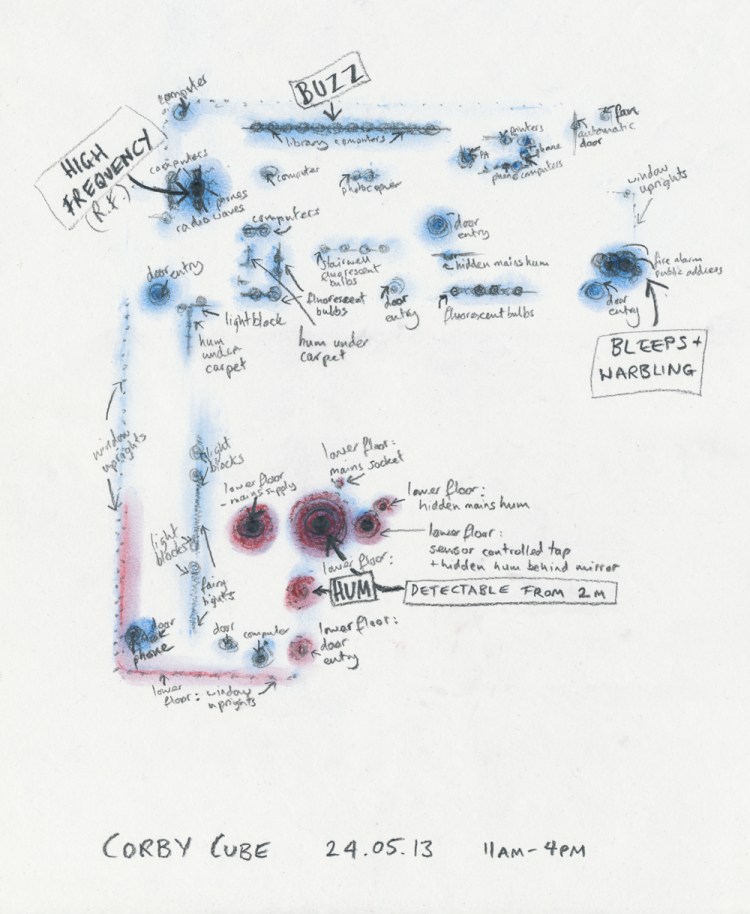 computer
BUZZ
fan
automatic
door
printers
PA
phone
phone computers
library computers
HIGH
FREQUENCY
(R.F.)
computers
phones
radio waves
computer
photocopier
window
uprights
computers
door
entry
stairwell
fluorescent
bulbs
hidden mains hum
fire alarm
public address
door entry
fluorescent
bulbs
door
entry
fluorescent bulbs
door
entry
light block
hum
under
carpet
hum under
carpet
BLEEPS +
WARBLING
window
uprights
light
blocks
lower floor:
mains socket
lower floor
- mains supply
lower floor:
hidden mains hum
lower floor:
sensor controlled tap
+ hidden hum behind mirror
light
blocks
lower floor:
HUM
DETECTABLE FROM 2M
fairy
lights
door
phone
door
computer
lower floor:
door
entry
lower
floor: window
uprights
CORBY CUBE 24.05.13 11AM-4PM